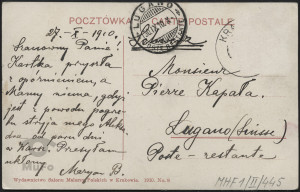 POCZTÓWKA — CARTE POSTALE
LUGANO
KRA
27-X-1910.
Szanowny Panie!
Kartka przyszła
z opóźnieniem, a
Mamy niema, gdyż
jest z powodu pogrze-
bu stryja mego
od paru dni
w Przesyłam
ukłony
Maryan B.
Monsieur
Pierre Kapała,
Lugano (Suisse)
Poste-restante
Wydawnictwo Salonu Malarzy Polskich w Krakowie.
MHF1/II/445